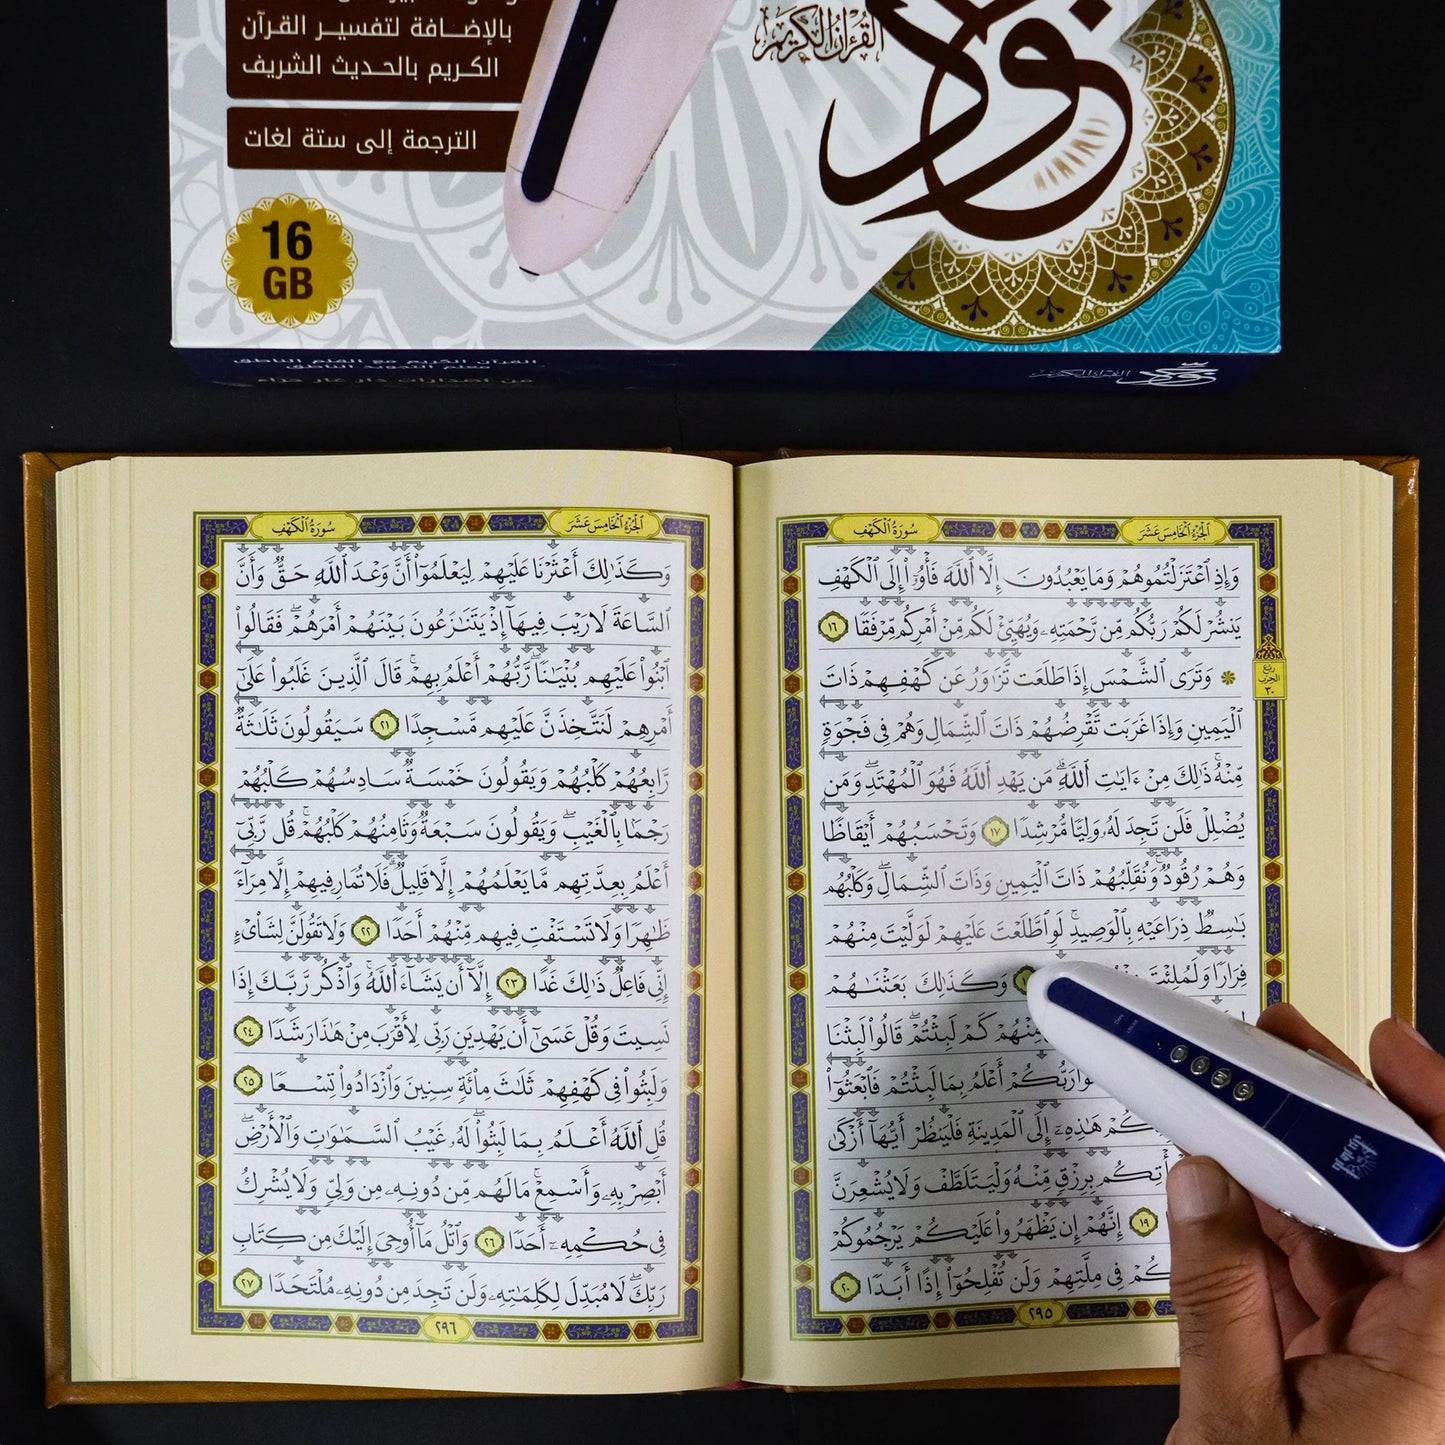 بالإضافة لتفسير القرآن
الكريم بالحديث الشريف
الترجمة إلى ستة لغات
16
GB
القرآن الكريم
نور
القرآن الكريم مع القلم الناطق
معلم التجويد الناطق
من إصدارات دار غار حراء
القرآن الكريم
سُورَةُ الكَهْفِ
الجُزْءُ الخَامِسَ عَشَرَ
وَإِذِ ٱعْتَزَلْتُمُوهُمْ وَمَا يَعْبُدُونَ إِلَّا ٱللَّهَ فَأْوُۥٓا۟ إِلَى ٱلْكَهْفِ
يَنشُرْ لَكُمْ رَبُّكُم مِّن رَّحْمَتِهِۦ وَيُهَيِّئْ لَكُم مِّنْ أَمْرِكُم مِّرْفَقًا ١٦
وَتَرَى ٱلشَّمْسَ إِذَا طَلَعَت تَّزَٰوَرُ عَن كَهْفِهِمْ ذَاتَ
ٱلْيَمِينِ وَإِذَا غَرَبَت تَّقْرِضُهُمْ ذَاتَ ٱلشِّمَالِ وَهُمْ فِى فَجْوَةٍ
مِّنْهُ ۚ ذَٰلِكَ مِنْ ءَايَٰتِ ٱللَّهِ ۗ مَن يَهْدِ ٱللَّهُ فَهُوَ ٱلْمُهْتَدِ ۖ وَمَن
يُضْلِلْ فَلَن تَجِدَ لَهُۥ وَلِيًّا مُّرْشِدًا ١٧ وَتَحْسَبُهُمْ أَيْقَاظًا
وَهُمْ رُقُودٌ ۚ وَنُقَلِّبُهُمْ ذَاتَ ٱلْيَمِينِ وَذَاتَ ٱلشِّمَالِ ۖ وَكَلْبُهُم
بَٰسِطٌ ذِرَاعَيْهِ بِٱلْوَصِيدِ ۚ لَوِ ٱطَّلَعْتَ عَلَيْهِمْ لَوَلَّيْتَ مِنْهُمْ
فِرَارًا وَلَمُلِئْتَ وَكَذَٰلِكَ بَعَثْنَٰهُمْ
مِّنْهُمْ كَمْ لَبِثْتُمْ ۖ قَالُوا۟ لَبِثْنَا
رَبُّكُمْ أَعْلَمُ بِمَا لَبِثْتُمْ فَٱبْعَثُوٓا۟
هَٰذِهِۦٓ إِلَى ٱلْمَدِينَةِ فَلْيَنظُرْ أَيُّهَآ أَزْكَىٰ
بِرِزْقٍ مِّنْهُ وَلْيَتَلَطَّفْ وَلَا يُشْعِرَنَّ
١٩ إِنَّهُمْ إِن يَظْهَرُوا۟ عَلَيْكُمْ يَرْجُمُوكُمْ
فِى مِلَّتِهِمْ وَلَن تُفْلِحُوٓا۟ إِذًا أَبَدًا ٢٠
٢٩٥
ربع
الحزب
٣٠
سُورَةُ الكَهْفِ
الجُزْءُ الخَامِسَ عَشَرَ
وَكَذَٰلِكَ أَعْثَرْنَا عَلَيْهِمْ لِيَعْلَمُوٓا۟ أَنَّ وَعْدَ ٱللَّهِ حَقٌّ وَأَنَّ
ٱلسَّاعَةَ لَا رَيْبَ فِيهَآ إِذْ يَتَنَٰزَعُونَ بَيْنَهُمْ أَمْرَهُمْ ۖ فَقَالُوا۟
ٱبْنُوا۟ عَلَيْهِم بُنْيَٰنًا ۖ رَّبُّهُمْ أَعْلَمُ بِهِمْ ۚ قَالَ ٱلَّذِينَ غَلَبُوا۟ عَلَىٰٓ
أَمْرِهِمْ لَنَتَّخِذَنَّ عَلَيْهِم مَّسْجِدًا ٢١ سَيَقُولُونَ ثَلَٰثَةٌ
رَّابِعُهُمْ كَلْبُهُمْ وَيَقُولُونَ خَمْسَةٌ سَادِسُهُمْ كَلْبُهُمْ
رَجْمًۢا بِٱلْغَيْبِ ۖ وَيَقُولُونَ سَبْعَةٌ وَثَامِنُهُمْ كَلْبُهُمْ ۚ قُل رَّبِّىٓ
أَعْلَمُ بِعِدَّتِهِم مَّا يَعْلَمُهُمْ إِلَّا قَلِيلٌ ۗ فَلَا تُمَارِ فِيهِمْ إِلَّا مِرَآءً
ظَٰهِرًا وَلَا تَسْتَفْتِ فِيهِم مِّنْهُمْ أَحَدًا ٢٢ وَلَا تَقُولَنَّ لِشَا۟ىْءٍ
إِنِّى فَاعِلٌ ذَٰلِكَ غَدًا ٢٣ إِلَّآ أَن يَشَآءَ ٱللَّهُ ۚ وَٱذْكُر رَّبَّكَ إِذَا
نَسِيتَ وَقُلْ عَسَىٰٓ أَن يَهْدِيَنِ رَبِّى لِأَقْرَبَ مِنْ هَٰذَا رَشَدًا ٢٤
وَلَبِثُوا۟ فِى كَهْفِهِمْ ثَلَٰثَ مِا۟ئَةٍ سِنِينَ وَٱزْدَادُوا۟ تِسْعًا ٢٥
قُلِ ٱللَّهُ أَعْلَمُ بِمَا لَبِثُوا۟ ۖ لَهُۥ غَيْبُ ٱلسَّمَٰوَٰتِ وَٱلْأَرْضِ ۖ
أَبْصِرْ بِهِۦ وَأَسْمِعْ ۚ مَا لَهُم مِّن دُونِهِۦ مِن وَلِىٍّ وَلَا يُشْرِكُ
فِى حُكْمِهِۦٓ أَحَدًا ٢٦ وَٱتْلُ مَآ أُوحِىَ إِلَيْكَ مِن كِتَابِ
رَبِّكَ ۖ لَا مُبَدِّلَ لِكَلِمَٰتِهِۦ وَلَن تَجِدَ مِن دُونِهِۦ مُلْتَحَدًا ٢٧
٢٩٦